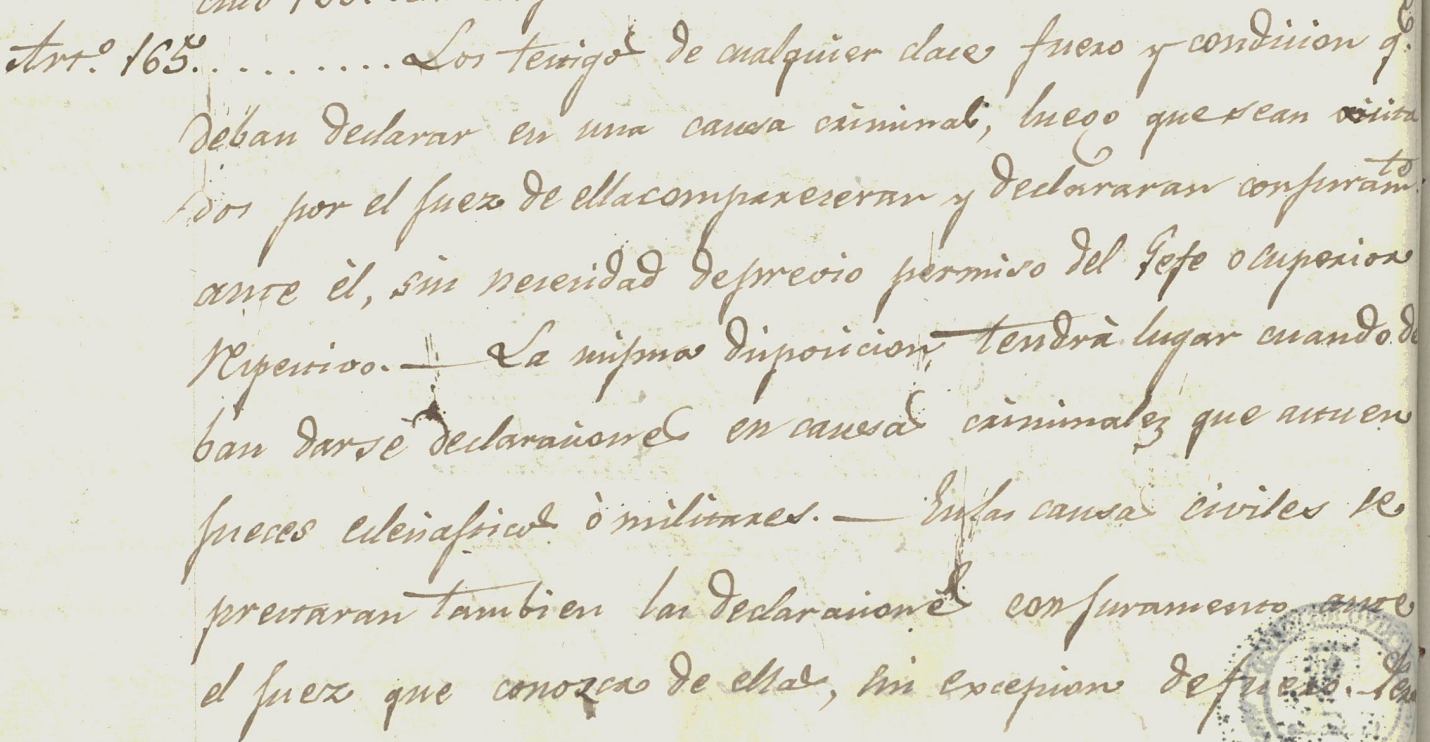 Art.º 165. . . . . . . . . . . Los testigos de cualquier clase fuero y condicion q.e
deban declarar en una causa criminal, luego que sean cita
dos por el Juez de ella compareceran y declararan con juram.to
ante èl, sin necesidad de previo permiso del Gefe o superior
respectivo. — La misma disposicion tendrà lugar cuando de
ban darse declaraciones en causas criminales que actuen
Jueces eclesiasticos ò militares. — En las causas civiles se
prestaran tambien las declaraciones con juramento ante
el Juez que conozca de ellas, sin excepcion de fuero.